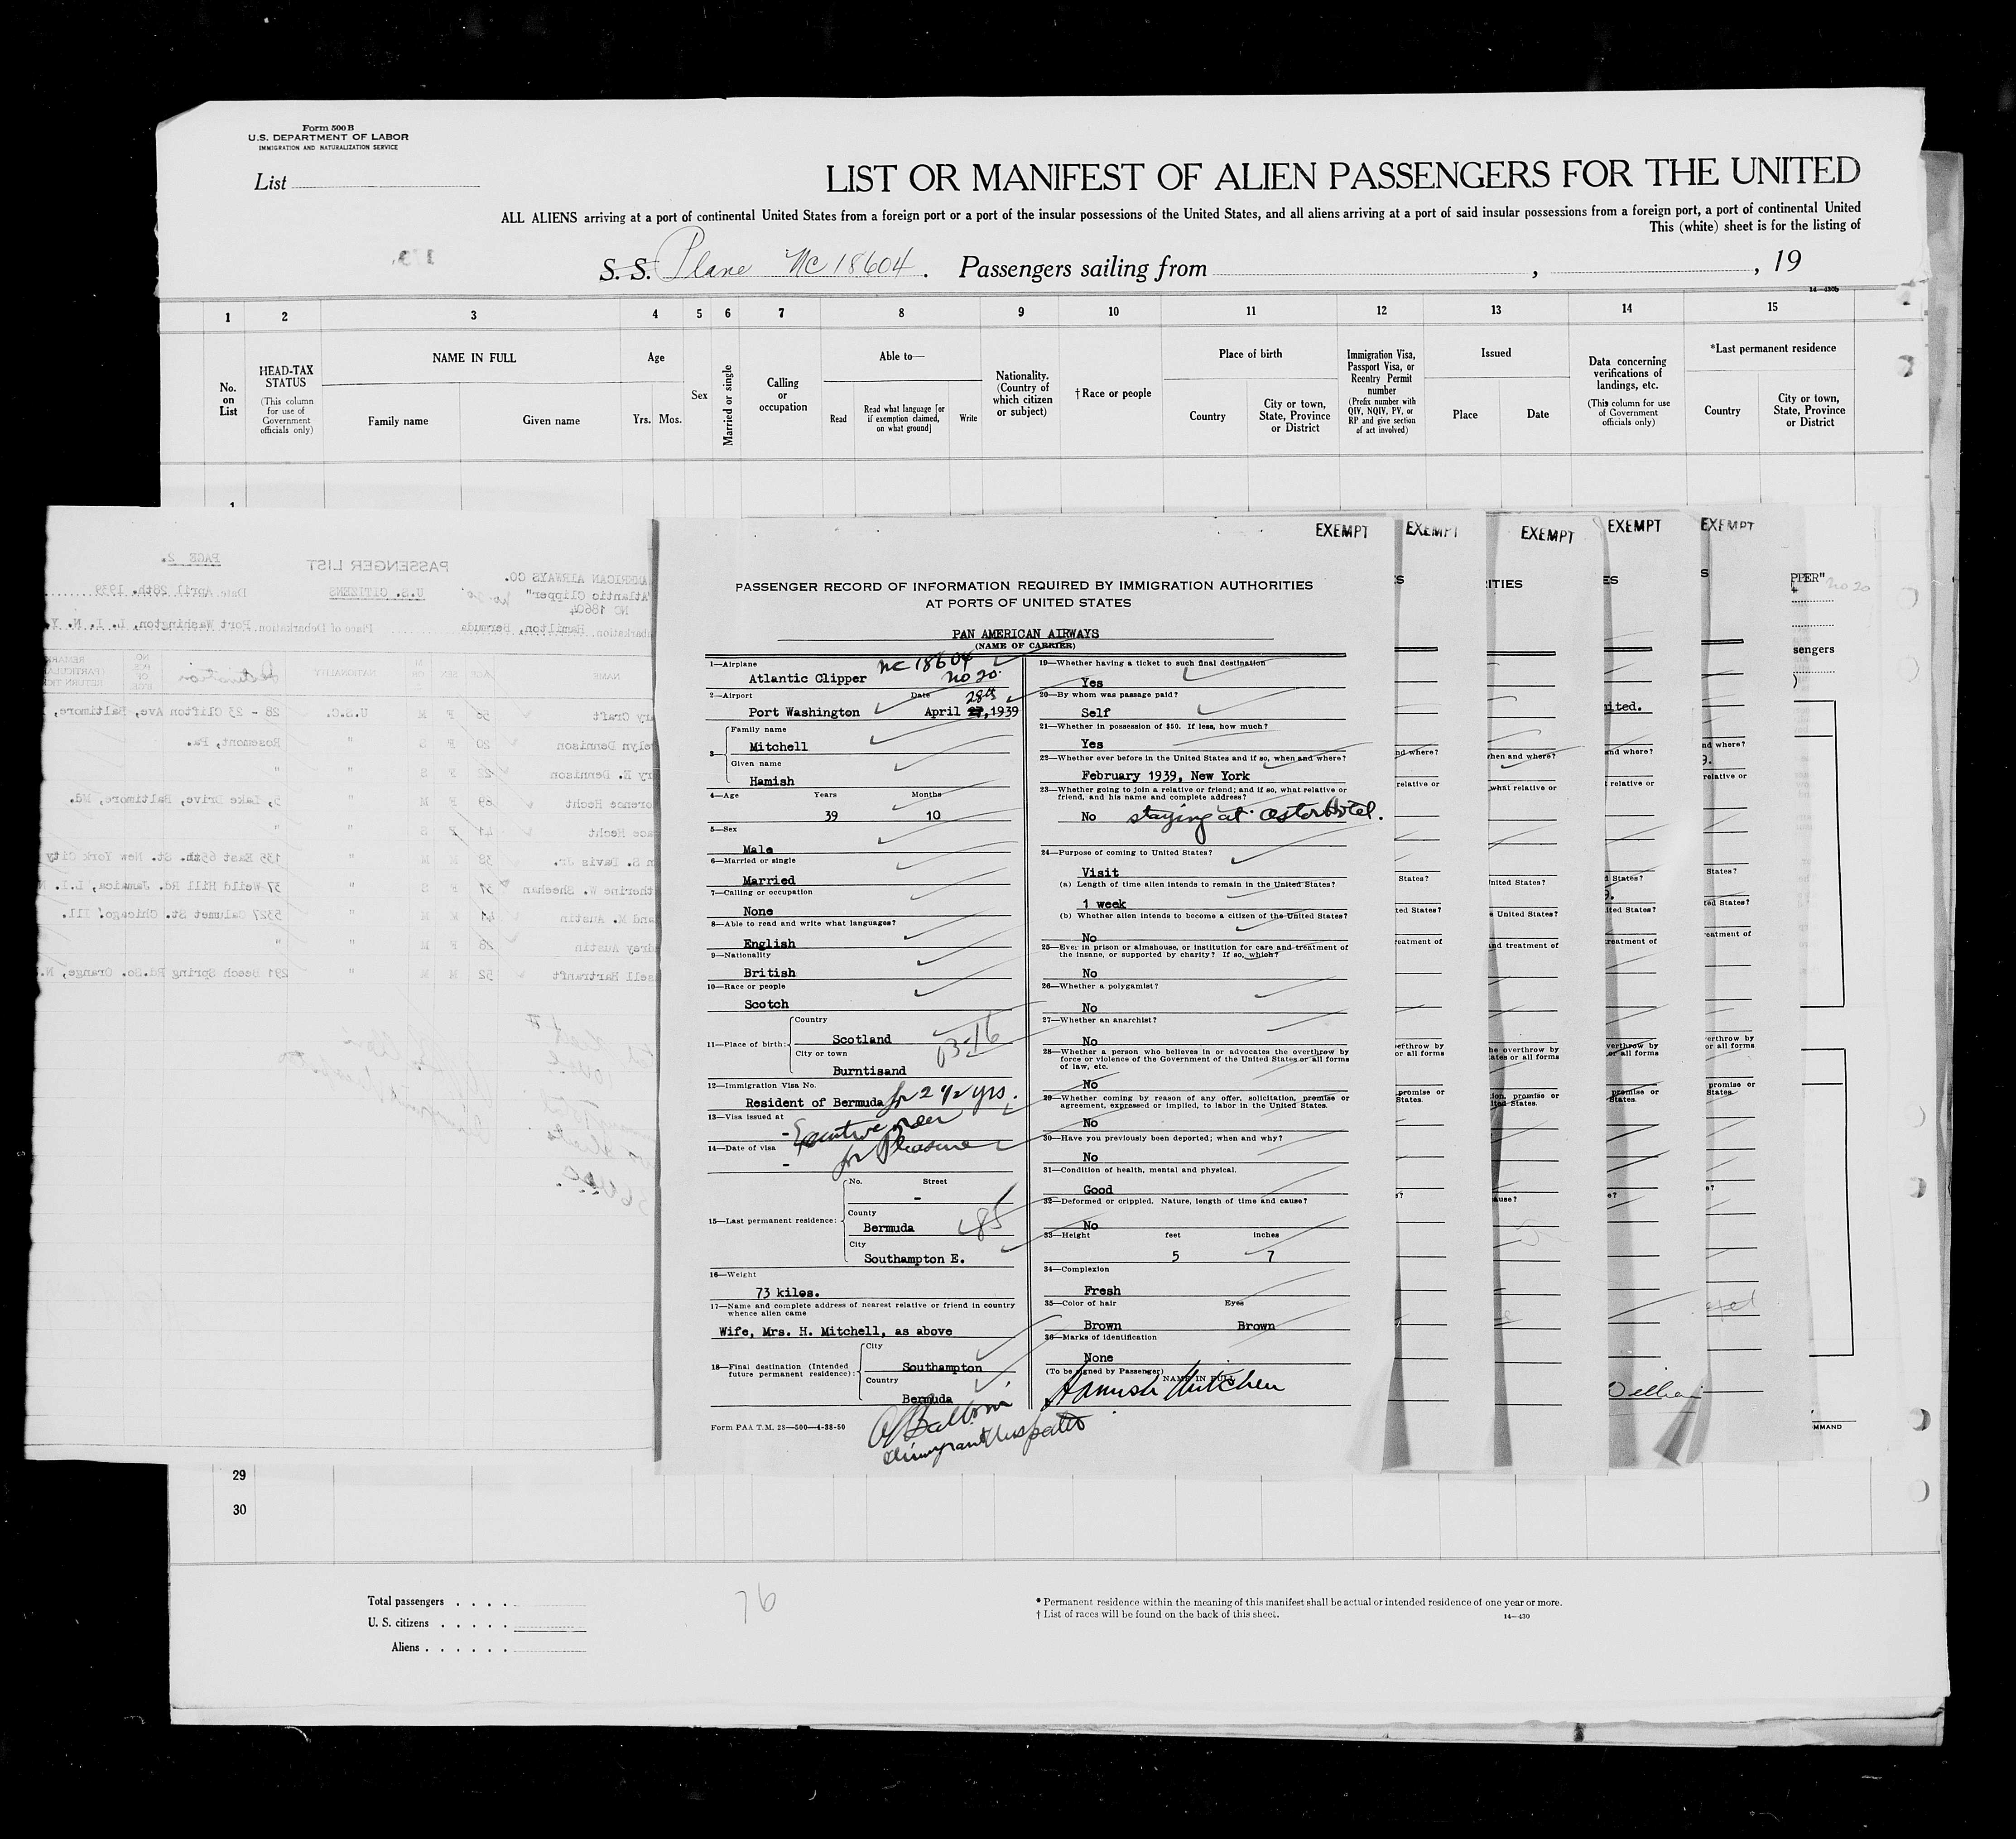 Form 500 B
U.S. DEPARTMENT OF LABOR
IMMIGRATION AND NATURALIZATION SERVICE
List
LIST OR MANIFEST OF ALIEN PASSENGERS FOR THE UNITED
ALL ALIENS arriving at a port of continental United States from a foreign port or a port of the insular possessions of the United States, and all aliens arriving at a port of said insular possessions from a foreign port, a port of continental United
This (white) sheet is for the listing of
S. S. Plane NC 18604. Passengers sailing from , , 19
14—430b
1 2 3 4 5 6 7 8 9 10 11 12 13 14 15
No. on List
HEAD-TAX STATUS
(This column for use of Government officials only)
NAME IN FULL
Family name
Given name
Age
Yrs. Mos.
Sex
Married or single
Calling or occupation
Able to—
Read
Read what language [or if exemption claimed, on what ground]
Write
Nationality. (Country of which citizen or subject)
†Race or people
Place of birth
Country
City or town, State, Province or District
Immigration Visa, Passport Visa, or Reentry Permit number
(Prefix number with QIV, NQIV, PV, or RP and give section of act involved)
Issued
Place
Date
Data concerning verifications of landings, etc.
(This column for use of Government officials only)
*Last permanent residence
Country
City or town, State, Province or District
1
PAGE 2.
PASSENGER LIST
AMERICAN AIRWAYS CO.
Date April 28th. 1939
U.S. CITIZENS
"Atlantic Clipper" No. 20.
NC 18604
Place of Debarkation Port Washington, L. I. N. Y.
barkation Hamilton, Bermuda
NAME AGE SEX M OR NATIONALITY Destination
ry Craft 56 F M U.S.C. 28 - 23 Clifton Ave, Baltimore,
elyn Dennison 20 F S " Rosemont, Pa.
ry E. Dennison 22 F S " "
orence Hecht 69 F M " 5, Lake Drive, Baltimore, Md.
ace Hecht 41 F S " "
n S. Davis Jr. 38 M M " 135 East 65th. St. New York City
therine W. Sheehan 31 F S " 37 Weild Hill Rd. Jamaica, L.I. N
and M. Austin 41 M M " 5327 Calumet St. Chicago, Ill.
drey Austin 26 F M " "
sell Hartranft 52 M M " 291 Beech Spring Rd. So. Orange, N.
EXEMPT
PASSENGER RECORD OF INFORMATION REQUIRED BY IMMIGRATION AUTHORITIES
AT PORTS OF UNITED STATES
PAN AMERICAN AIRWAYS
(NAME OF CARRIER)
1—Airplane NC 18604
Atlantic Clipper No 20.
2—Airport Date 28th
Port Washington April 27, 1939
3—
Family name
Mitchell
Given name
Hamish
4—Age Years Months
39 10
5—Sex
Male
6—Married or single
Married
7—Calling or occupation
None
8—Able to read and write what languages?
English
9—Nationality
British
10—Race or people
Scotch
11—Place of birth:
Country
Scotland
City or town
Burntisand
12—Immigration Visa No.
Resident of Bermuda for 2 1/2 yrs.
13—Visa issued at
- Executive order
14—Date of visa for Pleasure
-
15—Last permanent residence:
No. Street
-
County
Bermuda 85
City
Southampton E.
16—Weight
73 kilos.
17—Name and complete address of nearest relative or friend in country
whence alien came
Wife, Mrs. H. Mitchell, as above
18—Final destination (Intended future permanent residence):
City
Southampton
Country
Bermuda
Form PAA T.M. 28—500—4-38-50
19—Whether having a ticket to such final destination
Yes
20—By whom was passage paid?
Self
21—Whether in possession of $50. If less, how much?
Yes
22—Whether ever before in the United States and if so, when and where?
February 1939, New York
23—Whether going to join a relative or friend; and if so, what relative or
friend, and his name and complete address?
No staying at Astor Hotel.
24—Purpose of coming to United States?
Visit
(a) Length of time alien intends to remain in the United States?
1 week
(b) Whether alien intends to become a citizen of the United States?
No
25—Ever in prison or almshouse, or institution for care and treatment of
the insane, or supported by charity? If so, which?
No
26—Whether a polygamist?
No
27—Whether an anarchist?
No
28—Whether a person who believes in or advocates the overthrow by
force or violence of the Government of the United States or all forms
of law, etc.
No
29—Whether coming by reason of any offer, solicitation, promise or
agreement, expressed or implied, to labor in the United States.
No
30—Have you previously been deported; when and why?
No
31—Condition of health, mental and physical.
Good
32—Deformed or crippled. Nature, length of time and cause?
No
33—Height feet inches
5 7
34—Complexion
Fresh
35—Color of hair Eyes
Brown Brown
36—Marks of identification
None
(To be signed by Passenger) NAME IN FULL
Hamish Mitchell
Immigrant Inspector
EXEMPT
EXEMPT
EXEMPT
EXEMPT
29
30
Total passengers
U. S. citizens
Aliens
76
* Permanent residence within the meaning of this manifest shall be actual or intended residence of one year or more.
† List of races will be found on the back of this sheet.
14—430